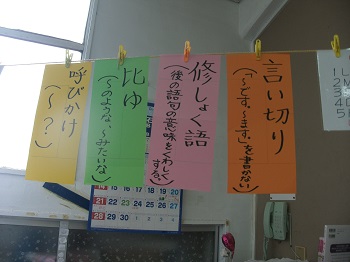 言い切り
(「〜です。〜ます。」を書かない)
修しょく語
(後の語句の意味をくわしくする。)
比ゆ
(〜のような、〜みたいな)
呼びかけ
(〜?)
14 15 16 17 18 19 20
21 22 23 24 25 26 27
28 29 30